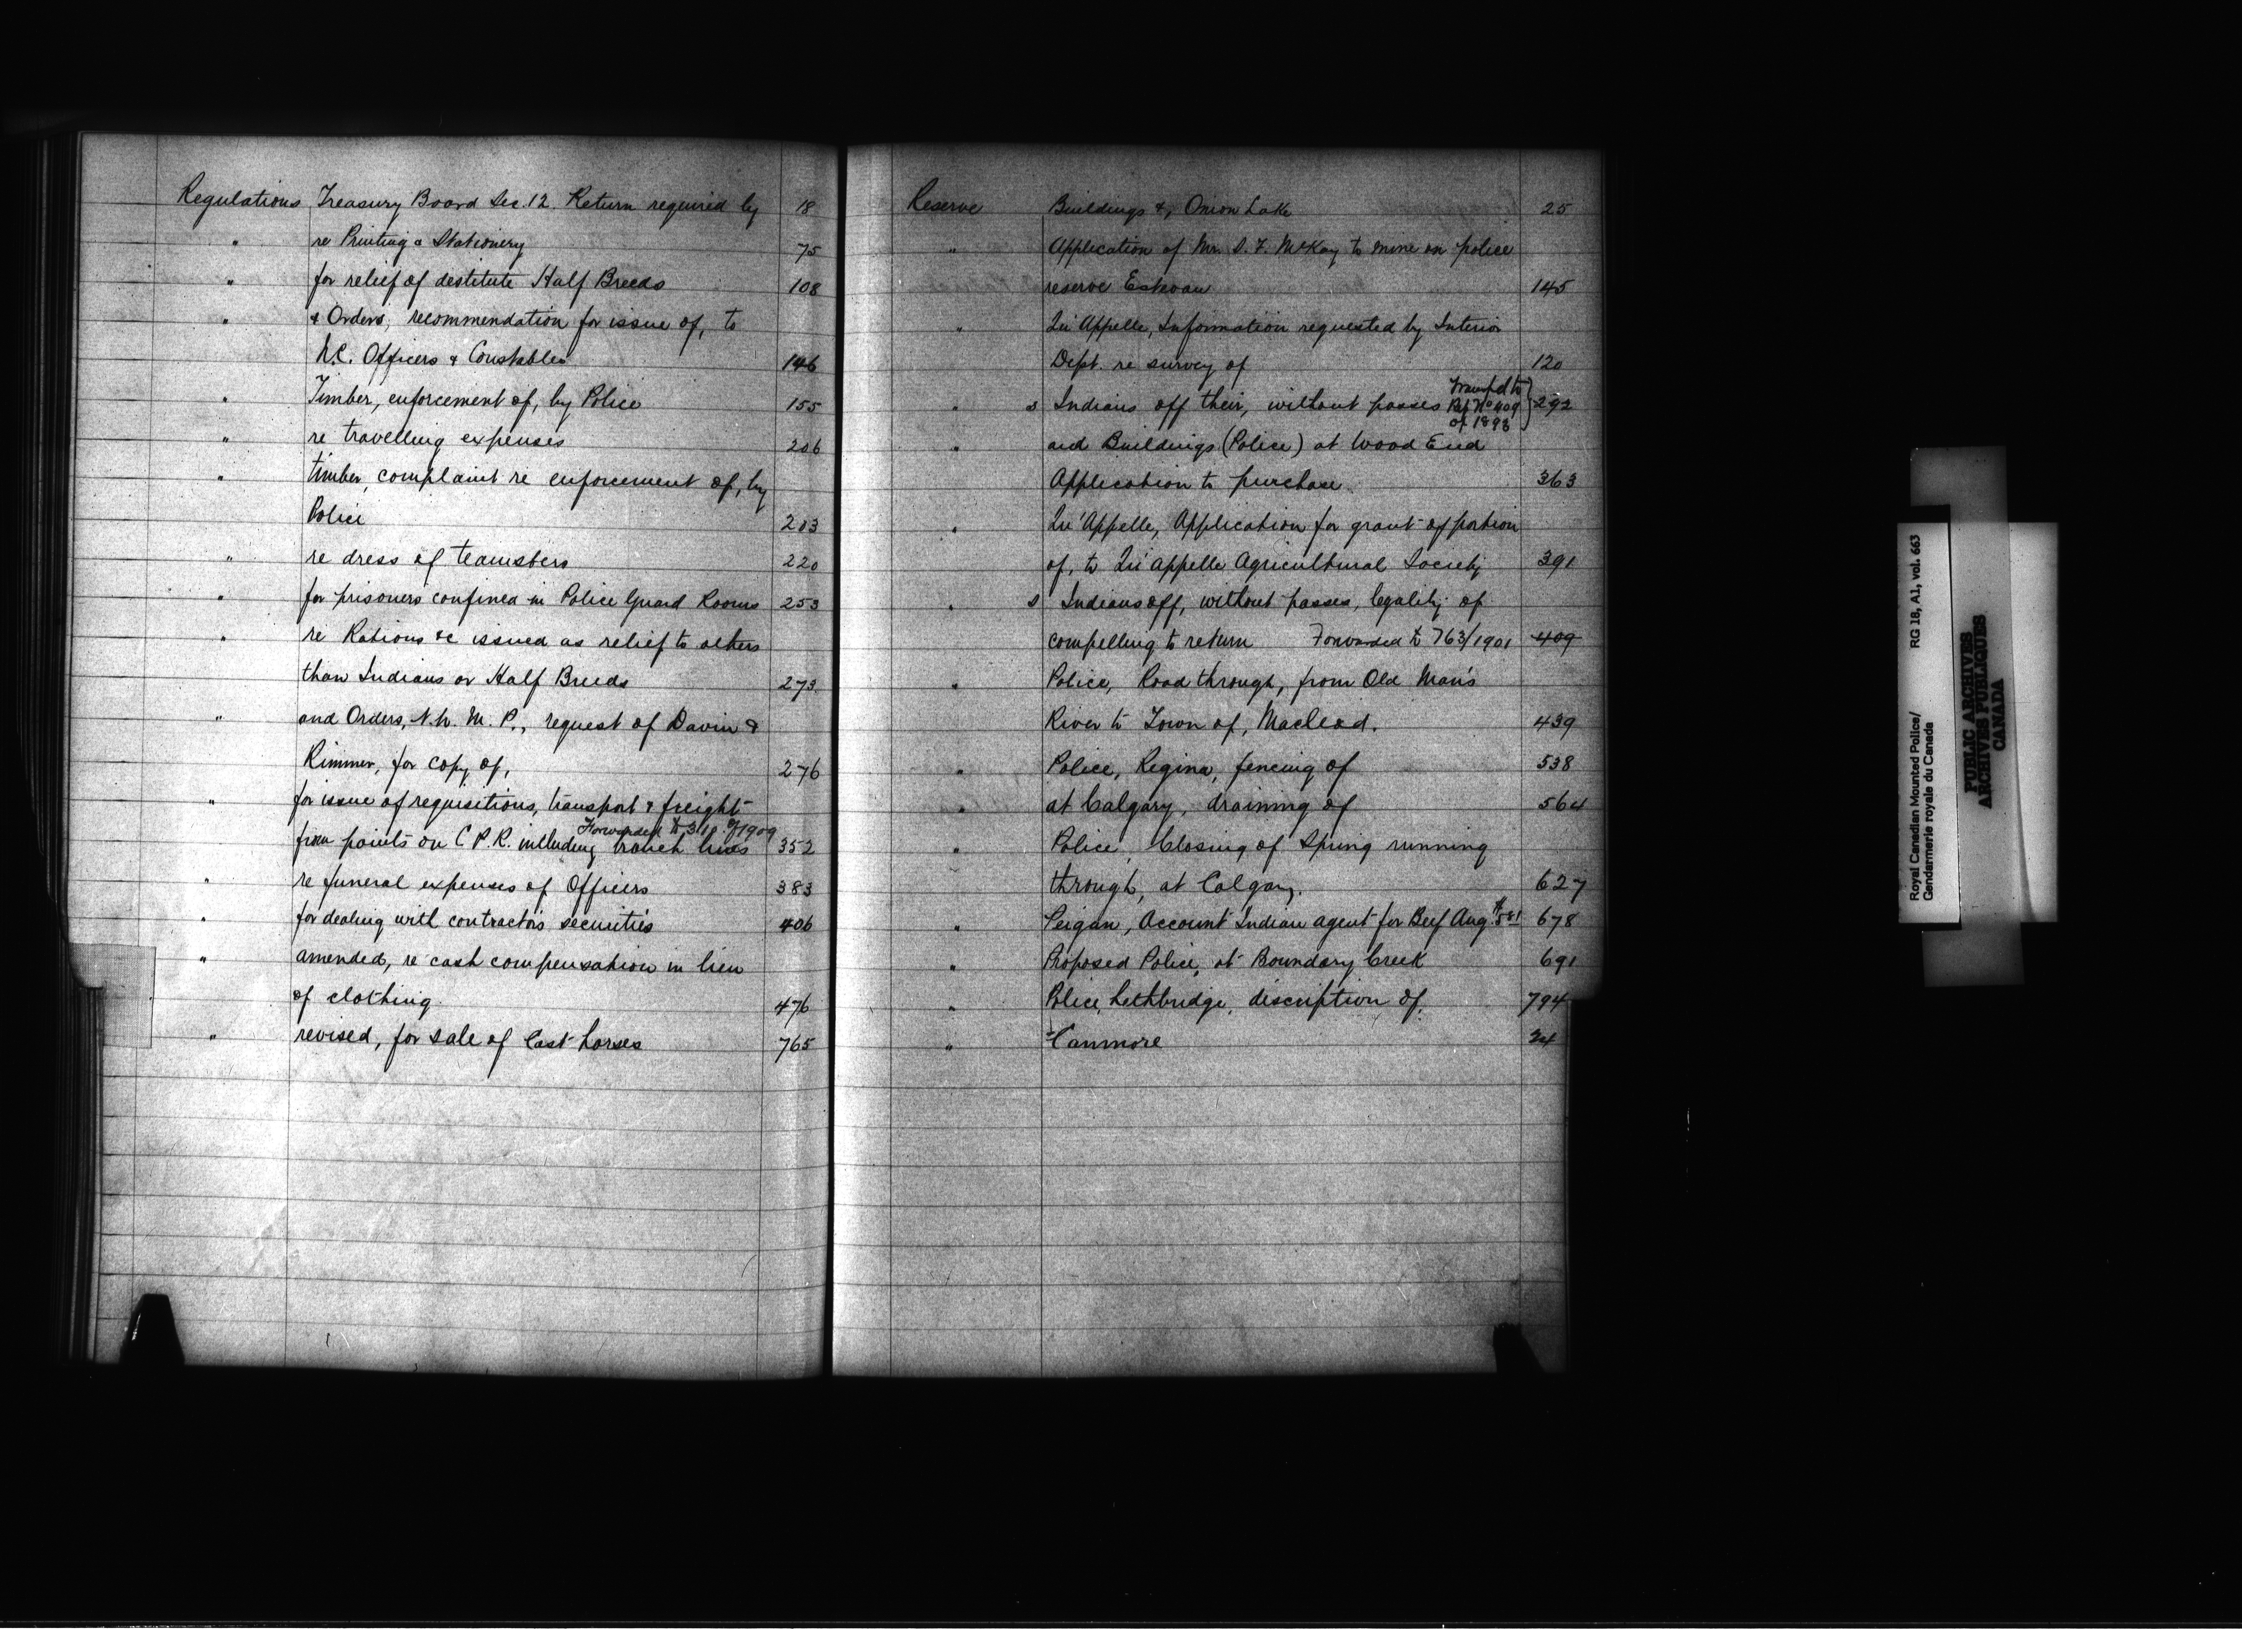 Regulations Treasury Board Sec. 12. Return required by 18
" re Printing & Stationery 75
" for relief of destitute Half Breeds 108
" & Orders, recommendation for issue of, to
N.C. Officers & Constables 146
" Timber, enforcement of, by Police 155
" re travelling expenses 206
" timber, complaint re enforcement of, by
Police 203
" re dress of teamsters 220
" for prisoners confined in Police Guard Rooms 253
" re Rations &c issued as relief to others
than Indians or Half Breeds 273
" and Orders, N.W.M.P., request of Davin &
Rimmer, for copy of, 276
" for issue of requisitions, transport & freight
Forwarded to 318 of 1909
from points on C.P.R. including branch lines 352
" re funeral expenses of Officers 383
" for dealing with contractors securities 406
" amended, re cash compensation in lieu
of clothing 476
" revised, for sale of Cast horses 765
Reserve Buildings &, Onion Lake 25
" Application of Mr. S. F. McKay to mine on police
reserve Estevan 145
" Qu'Appelle, Information requested by Interior
Dept. re survey of 120
transf'd to
" s Indians off their, without passes Ref No 409 } 292
of 1893
" and Buildings (Police) at Wood End
Application to purchase 363
" Qu'Appelle, Application for grant of portion
of, to Qu'appelle Agricultural Society 391
" s Indians off, without passes, legality of
compelling to return Forwarded to 763/1901 409
" Police, Road through, from Old Man's
River to Town of, Macleod. 439
" Police, Regina, fencing of 538
" at Calgary, draining of 564
" Police, Closing of Spring running
through, at Calgary. 627
" Peigan, Account Indian agent for Beef Aug. 678
" Proposed Police, at Boundary Creek 691
" Police, Lethbridge, discription of, 794
" Canmore 24
Royal Canadian Mounted Police/
Gendarmerie royale du Canada
RG 18, A1, vol. 663
PUBLIC ARCHIVES
ARCHIVES PUBLIQUES
CANADA